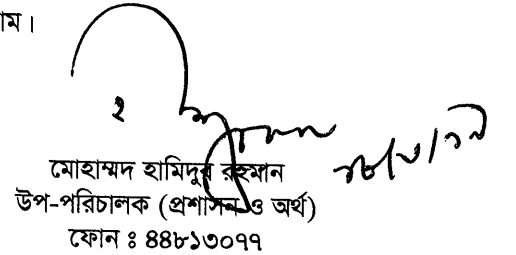 াম।
মোহাম্মদ হামিদুর রহমান
উপ-পরিচালক (প্রশাসন ও অর্থ)
ফোন ঃ ৪৪৮১৩০৭৭